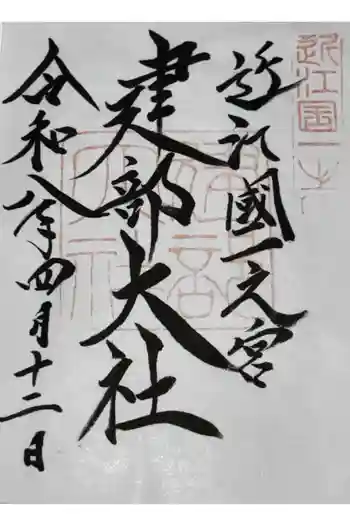 近江國一之宮
建部大社
令和八年四月十二日
近江国一之
建部大社